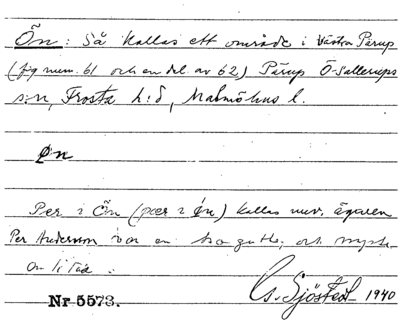 Ön: Så kallas ett område i Västra Pärup
(fig num. 61 och en del av 62) Pärup Ö. Sallerups
s:n, Frosta h:d, Malmöhus l.
øn
Per i Ön (pær i øn) kallas nuv. ägaren
Per Andersson var en bra gubbe, och mycke
Nr 5573. G. Sjöstedt 1940